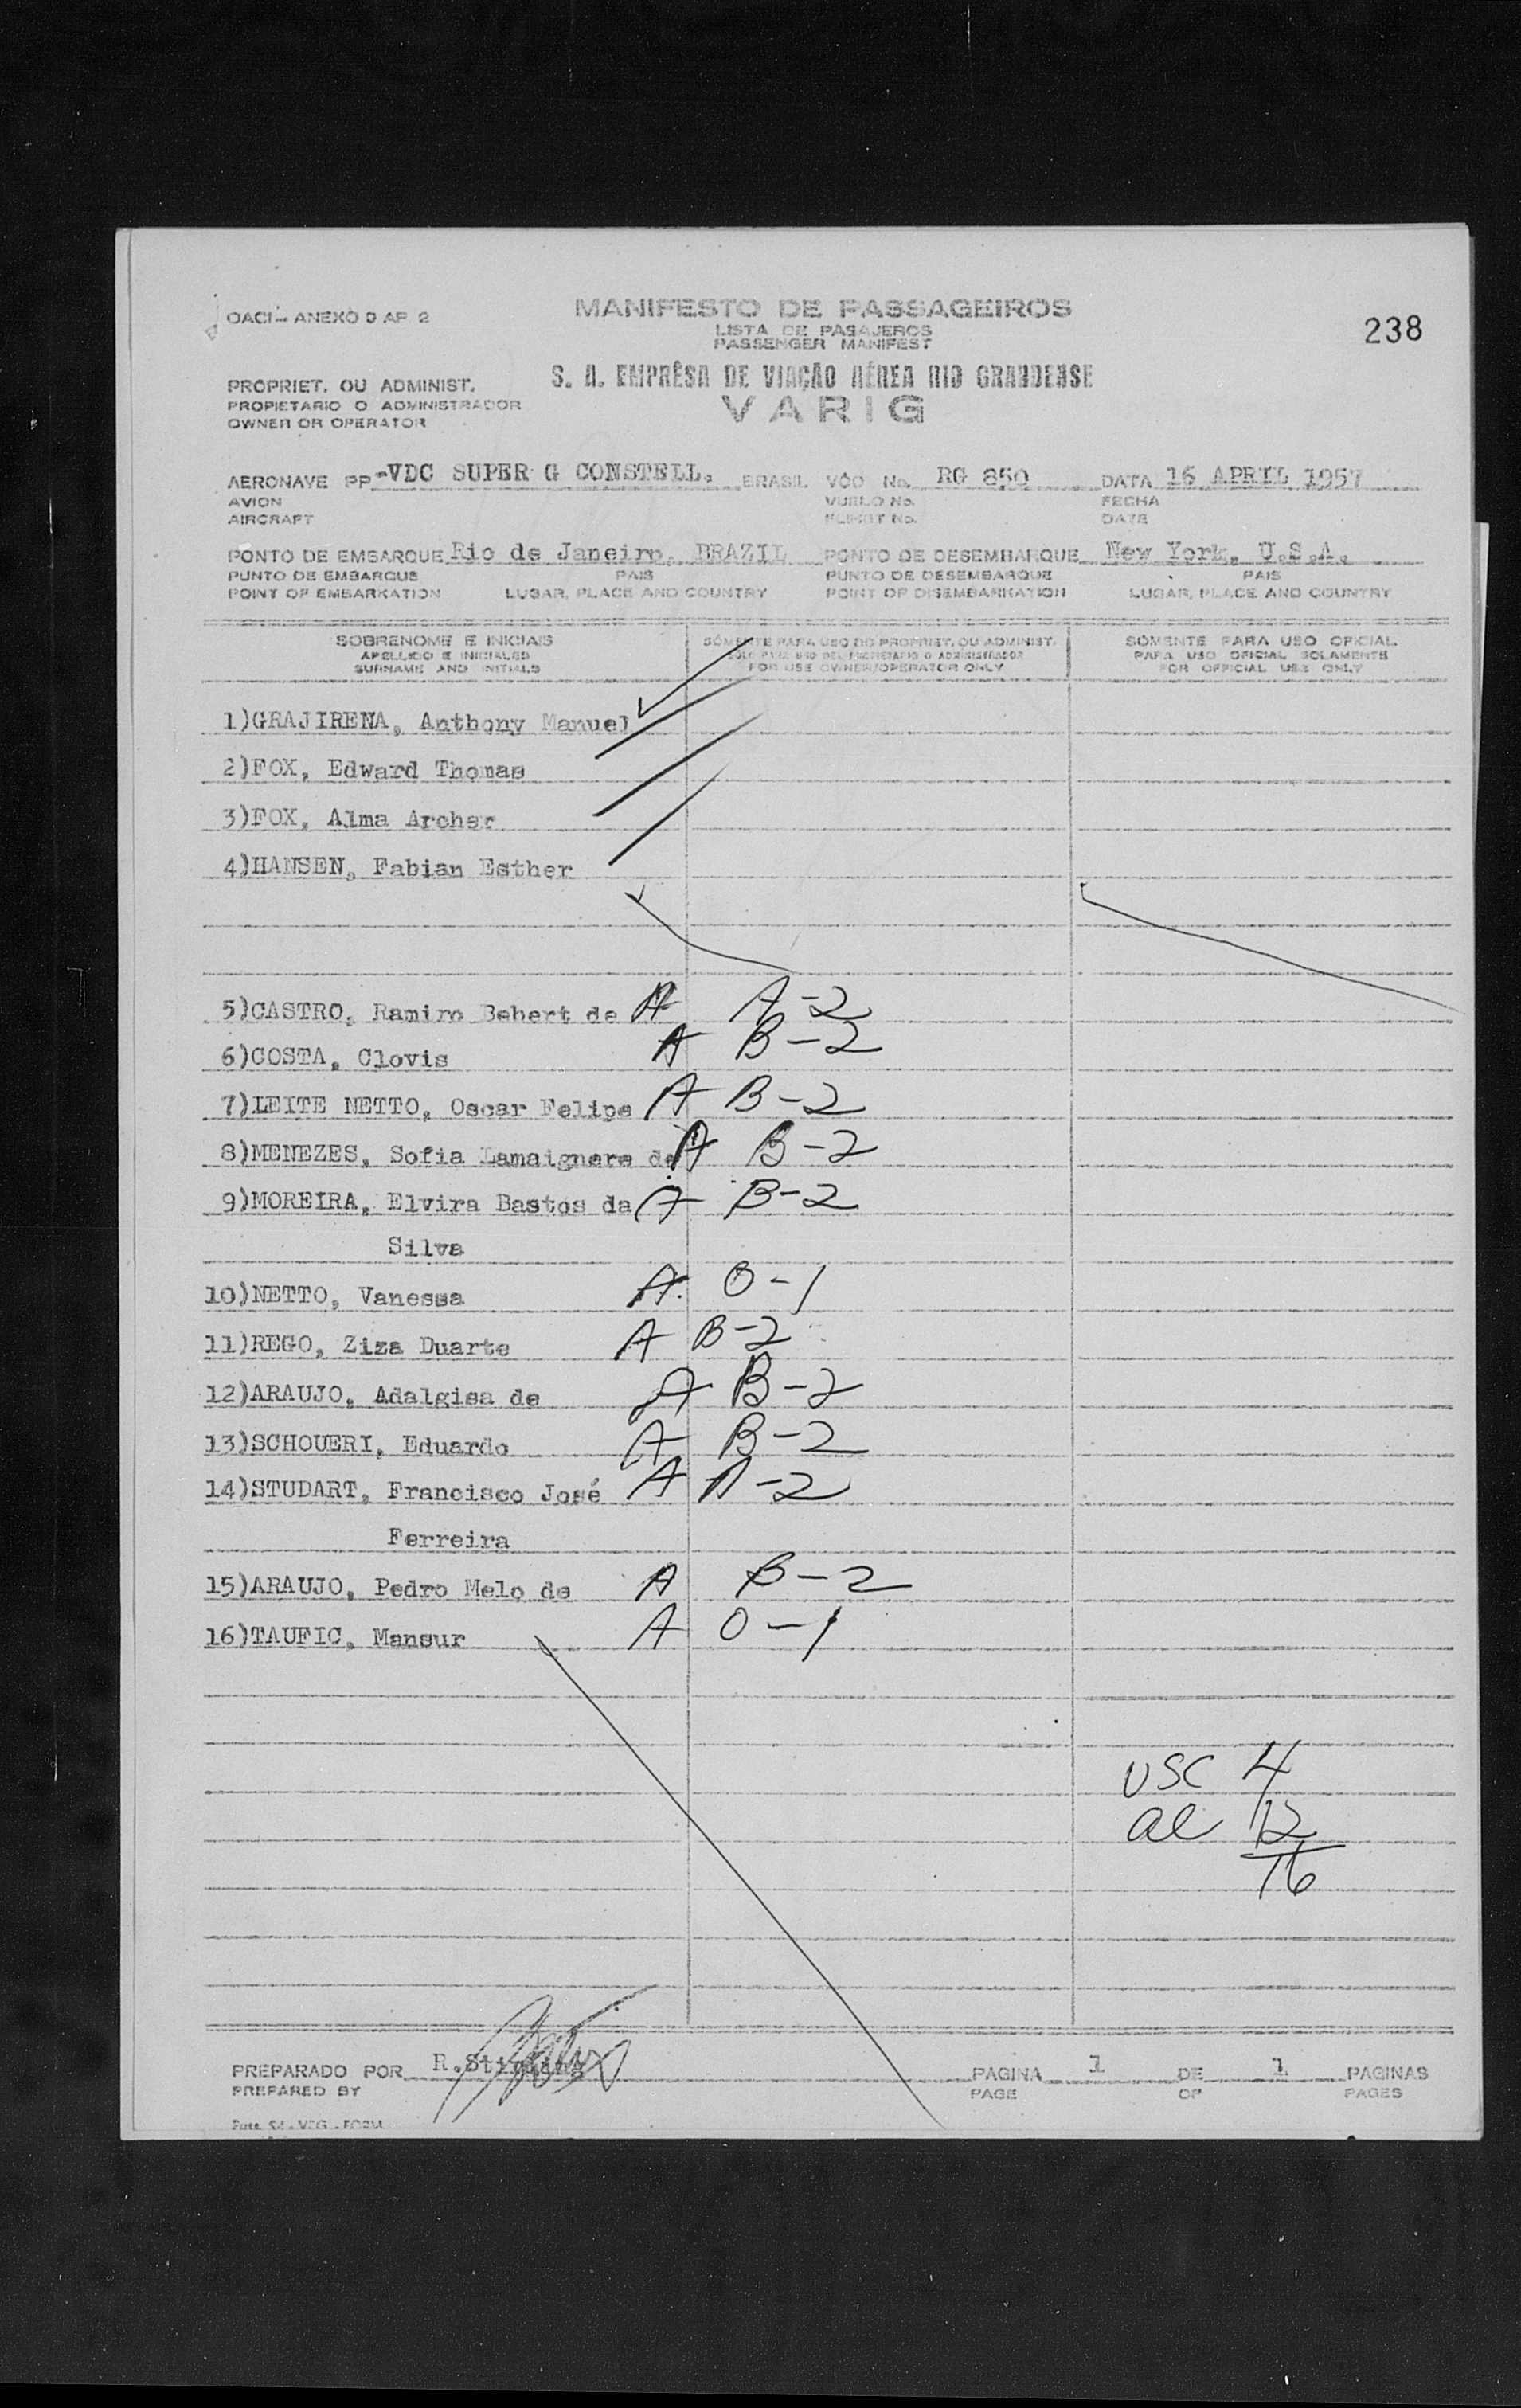 OACI - ANEXO 9 AP 2
MANIFESTO DE PASSAGEIROS
LISTA DE PASAJEROS
PASSENGER MANIFEST
238
S. A. EMPRÊSA DE VIAÇÃO AÉREA RIO GRANDENSE
VARIG
PROPRIET. OU ADMINIST.
PROPIETARIO O ADMINISTRADOR
OWNER OR OPERATOR
AERONAVE PP-VDC SUPER G CONSTELL. BRASIL VÔO No. RG 850 DATA 16 APRIL 1957
AVION VUELO No. FECHA
AIRCRAFT FLIGHT No. DATE
PONTO DE EMBARQUE Rio de Janeiro, BRAZIL PONTO DE DESEMBARQUE New York, U.S.A.
PUNTO DE EMBARQUE PAIS PUNTO DE DESEMBARQUE PAIS
POINT OF EMBARKATION LUGAR, PLACE AND COUNTRY POINT OF DISEMBARKATION LUGAR, PLACE AND COUNTRY
SOBRENOME E INICIAIS SÒMENTE PARA USO DO PROPRIET. OU ADMINIST. SÒMENTE PARA USO OFICIAL
APELLIDO E INICIALES SOLO PARA USO DEL PROPIETARIO O ADMINISTRADOR PARA USO OFICIAL SOLAMENTE
SURNAME AND INITIALS FOR USE OWNER/OPERATOR ONLY FOR OFFICIAL USE ONLY
1)GRAJIRENA, Anthony Manuel
2)FOX, Edward Thomas
3)FOX, Alma Archer
4)HANSEN, Fabian Esther
5)CASTRO, Ramiro Bebert de A A-2
6)COSTA, Clovis A B-2
7)LEITE NETTO, Oscar Felipe A B-2
8)MENEZES, Sofia Lamaignere de A B-2
9)MOREIRA, Elvira Bastos da A B-2
Silva
10)NETTO, Vanessa A O-1
11)REGO, Ziza Duarte A B-2
12)ARAUJO, Adalgisa de A B-2
13)SCHOUERI, Eduardo A B-2
14)STUDART, Francisco José A A-2
Ferreira
15)ARAUJO, Pedro Melo de A B-2
16)TAUFIC, Mansur A O-1
USC 4
al 12
16
PREPARADO POR R. PAGINA 1 DE 1 PAGINAS
PREPARED BY PAGE OF PAGES